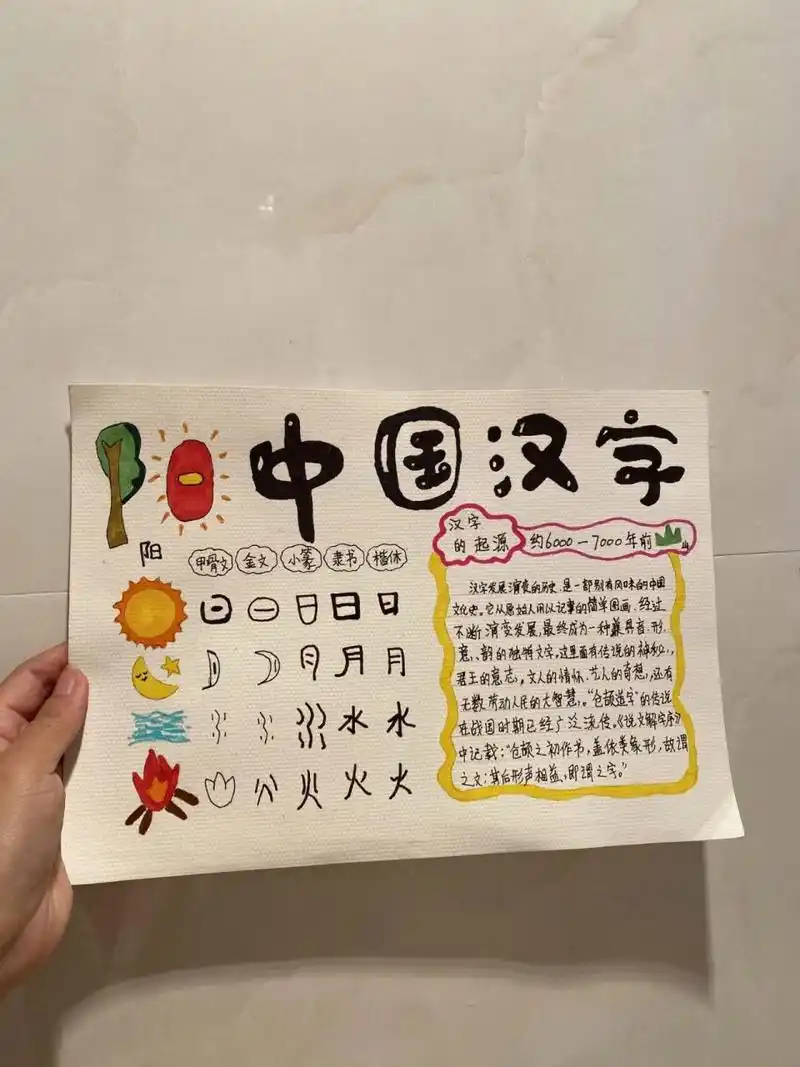 中国汉字
阳
甲骨文 金文 小篆 隶书 楷体
日 日
月 月
水 水
火 火 火
汉字
的起源
约6000—7000年前
汉字发展演变的历史,是一部别有风味的中国
文化史。它从原始人用以记事的简单图画,经过
不断演变发展,最终成为一种兼具音、形、
意、韵的独特文字。这里面有传说的神秘,
君王的意志,文人的情怀、艺人的奇想,还有
无数劳动人民的大智慧。“仓颉造字”的传说
在战国时期已经广泛流传。《说文解字序》
中记载:“仓颉之初作书,盖依类象形,故谓
之文;其后形声相益,即谓之字。”